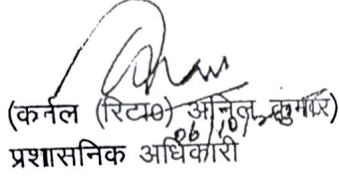 (कर्नल (रिटा०) अनिल कुमार)
06/10/
प्रशासनिक अधिकारी